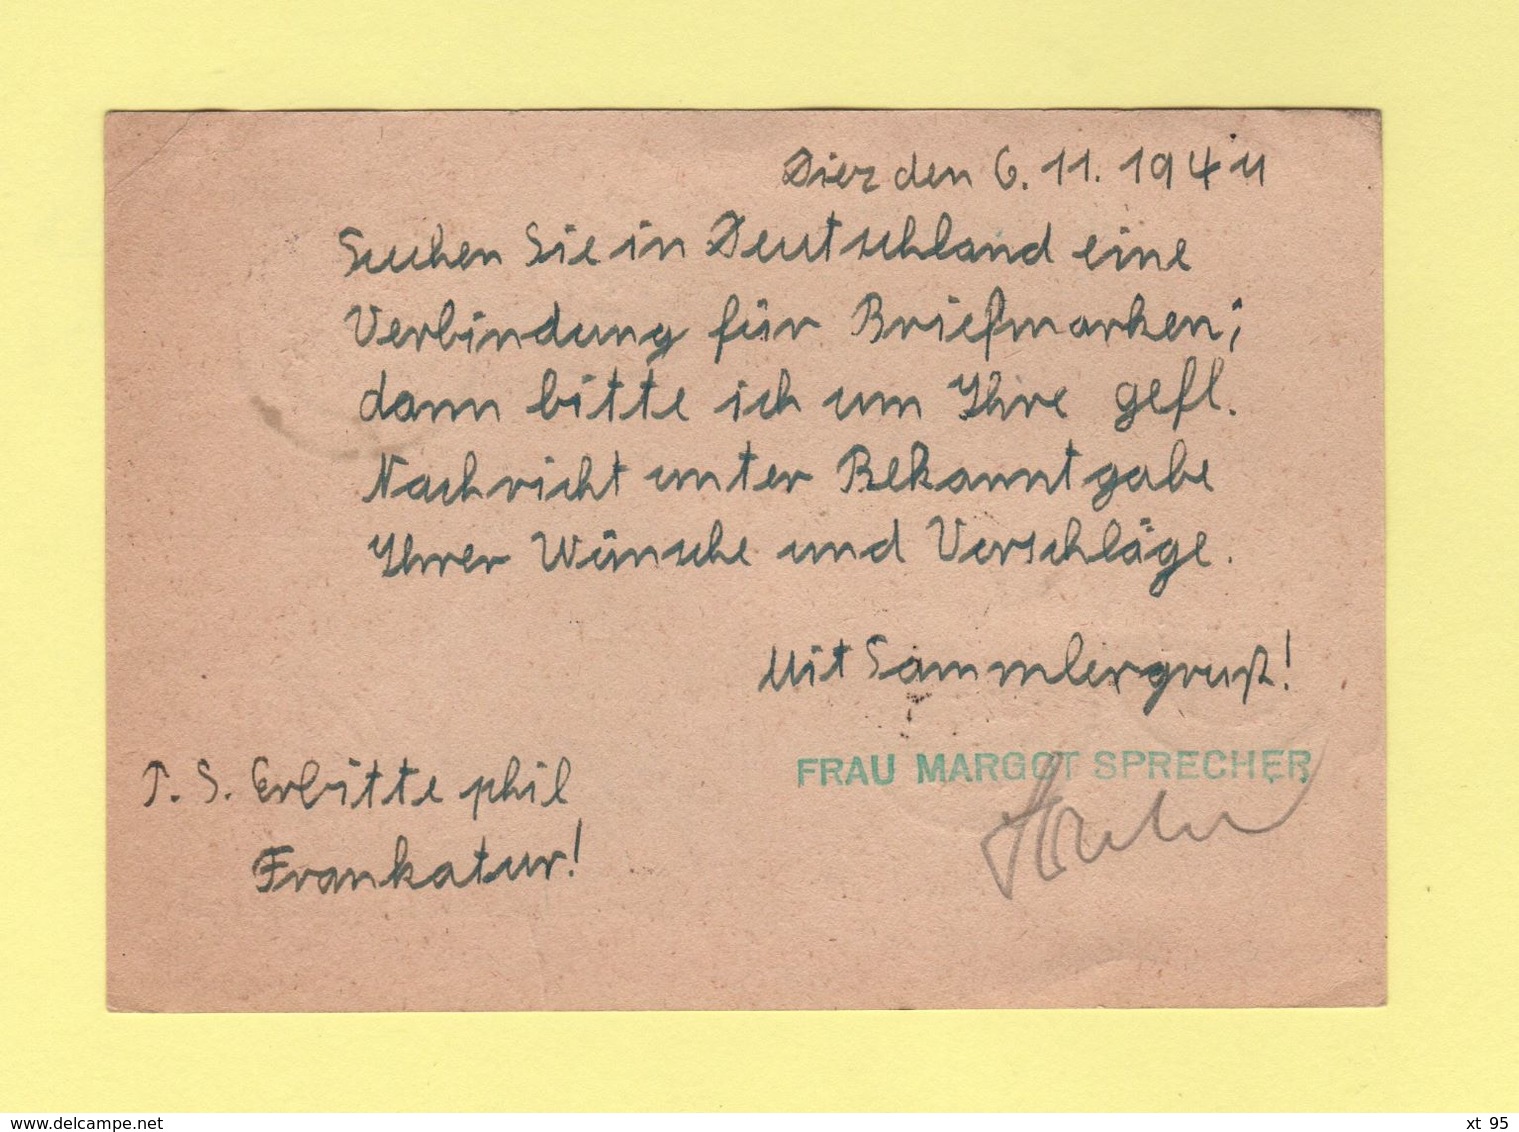 Diez den 6.11.1941
Suchen Sie in Deutschland eine
Verbindung für Briefmarken;
dann bitte ich um Ihre gefl.
Nachricht unter Bekanntgabe
Ihrer Wünsche und Vorschläge.
Mit Sammlergruß!
FRAU MARGOT SPRECHER
P. S. Erbitte phil
Frankatur!
xt 95